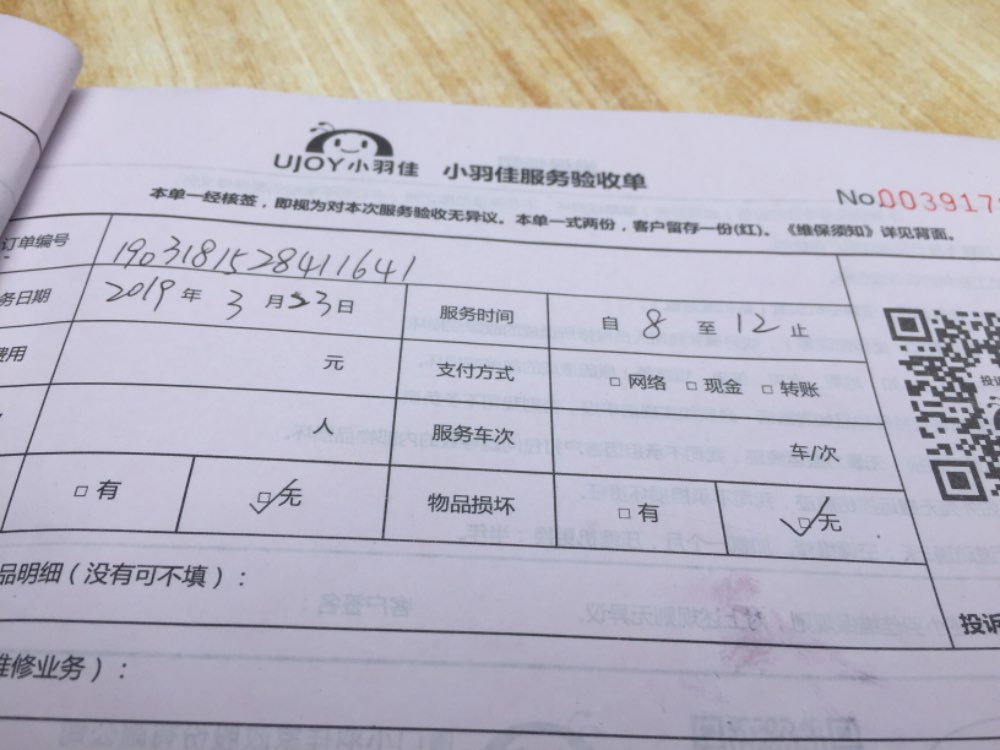 UJOY小羽佳 小羽佳服务验收单
No.0039179
本单一经核签，即视为对本次服务验收无异议。本单一式两份，客户留存一份(红)。《维保须知》详见背面。
订单编号 1903181528411641
务日期 2019年3月23日 服务时间 自8至12止
费用 元 支付方式 □网络 □现金 □转账
人 服务车次 车/次
□有 ☑无 物品损坏 □有 ☑无
品明细（没有可不填）：
投诉
维修业务）：